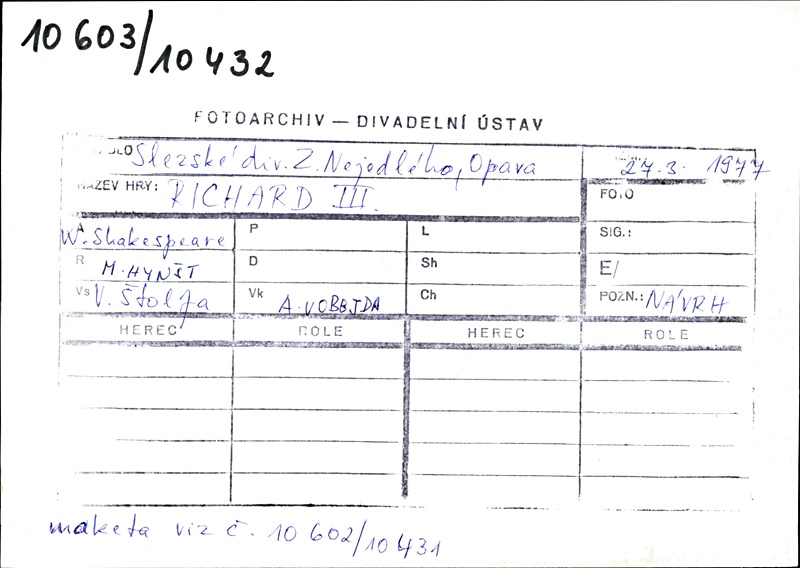 10 603/10 432
FOTOARCHIV — DIVADELNÍ ÚSTAV
Slezské div. Z. Nejedlého, Opava 27.3. 1977
NÁZEV HRY: RICHARD III. FOTO
A W. Shakespeare P L SIG.:
R M. HYNŠT D Sh E/
Vs V. Štolfa Vk A. VOBEJDA Ch POZN.: NÁVRH
HEREC ROLE HEREC ROLE
maketa viz č. 10 602/10 431